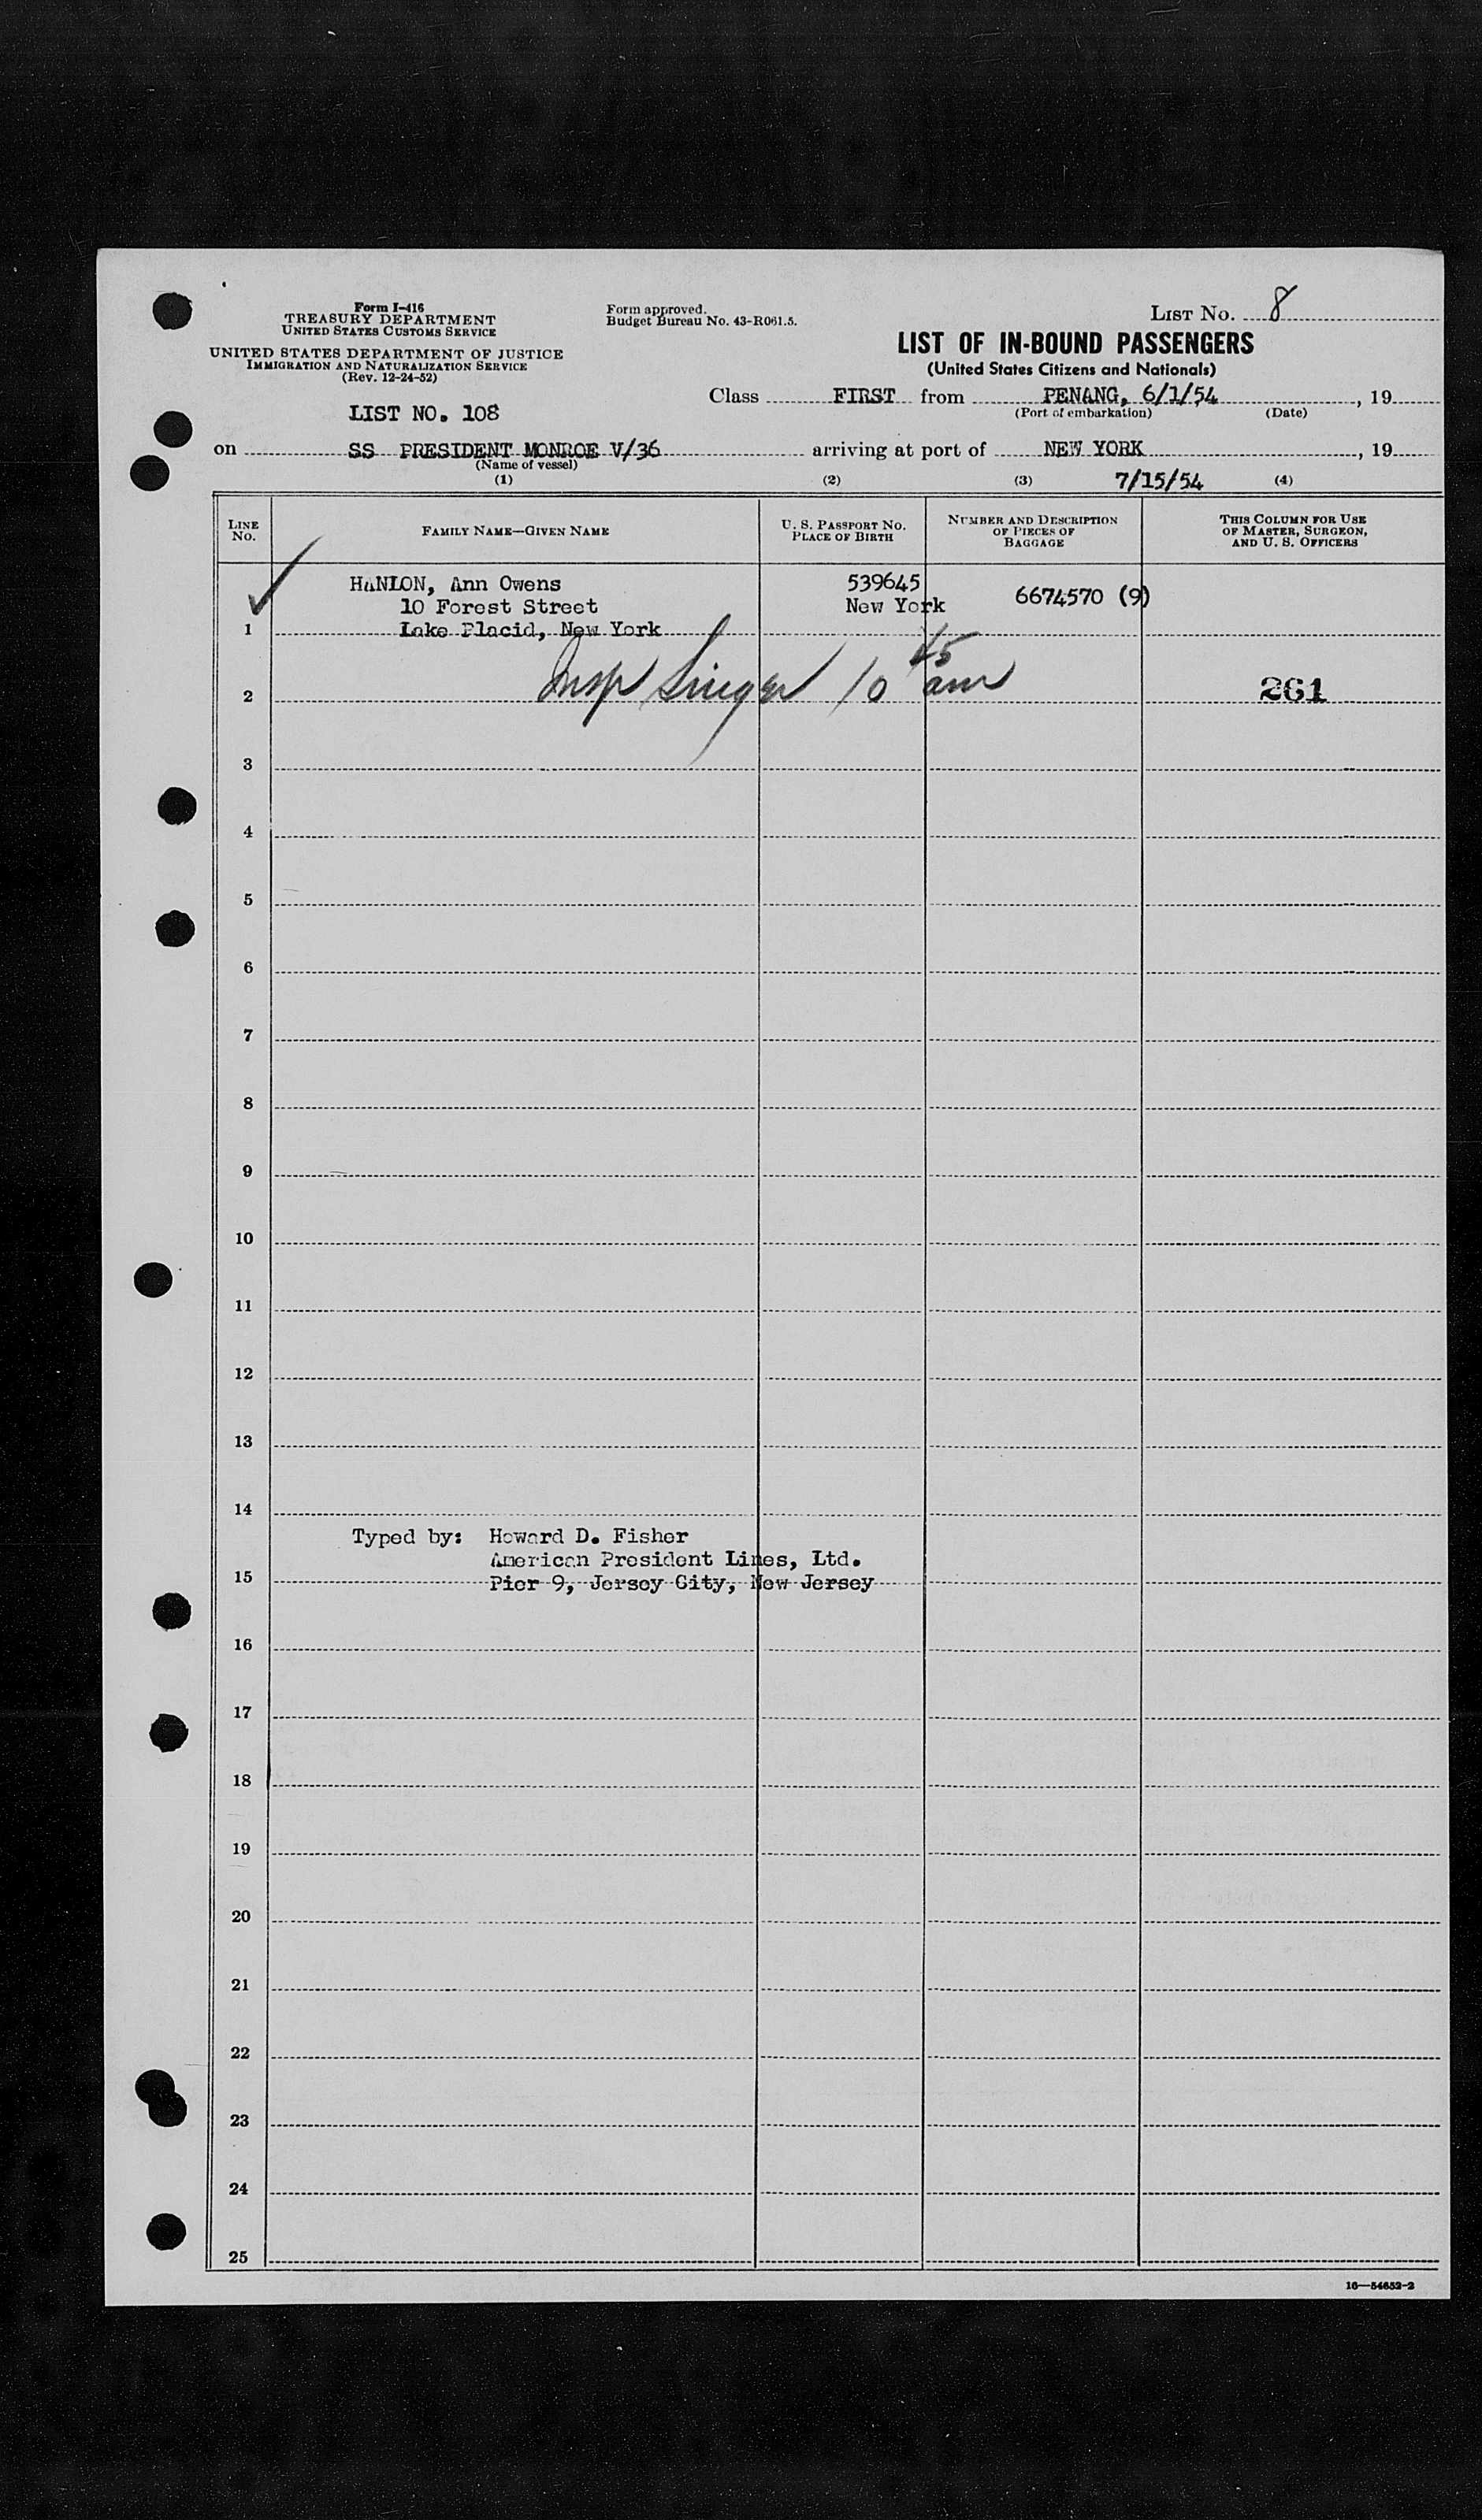 Form I-416
TREASURY DEPARTMENT
UNITED STATES CUSTOMS SERVICE
UNITED STATES DEPARTMENT OF JUSTICE
IMMIGRATION AND NATURALIZATION SERVICE
(Rev. 12-24-52)
LIST NO. 108
Form approved.
Budget Bureau No. 43-R061.5.
LIST No. 8
LIST OF IN-BOUND PASSENGERS
(United States Citizens and Nationals)
Class FIRST from PENANG, 6/1/54, 19
(Port of embarkation) (Date)
on SS PRESIDENT MONROE V/36 arriving at port of NEW YORK, 19
(Name of vessel)
7/15/54
(1) (2) (3) (4)
LINE No.
FAMILY NAME—GIVEN NAME
U. S. PASSPORT No.
PLACE OF BIRTH
NUMBER AND DESCRIPTION
OF PIECES OF
BAGGAGE
THIS COLUMN FOR USE
OF MASTER, SURGEON,
AND U. S. OFFICERS
HANLON, Ann Owens 539645 6674570 (9)
10 Forest Street New York
1 Lake Placid, New York
2 Insp Singer 10 45 am 261
3
4
5
6
7
8
9
10
11
12
13
14
Typed by: Howard D. Fisher
American President Lines, Ltd.
15 Pier 9, Jersey City, New Jersey
16
17
18
19
20
21
22
23
24
25
16—54652-2